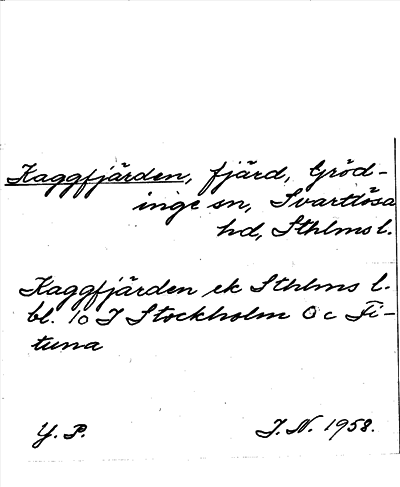 Kaggfjärden, fjärd, Gröd-
inge sn, Svartlösa
hd, Sthlms l.
Kaggfjärden ek Sthlms l.
bl. 10 I Stockholm Oc Fi-
tuna
Y. P. I. N. 1958.